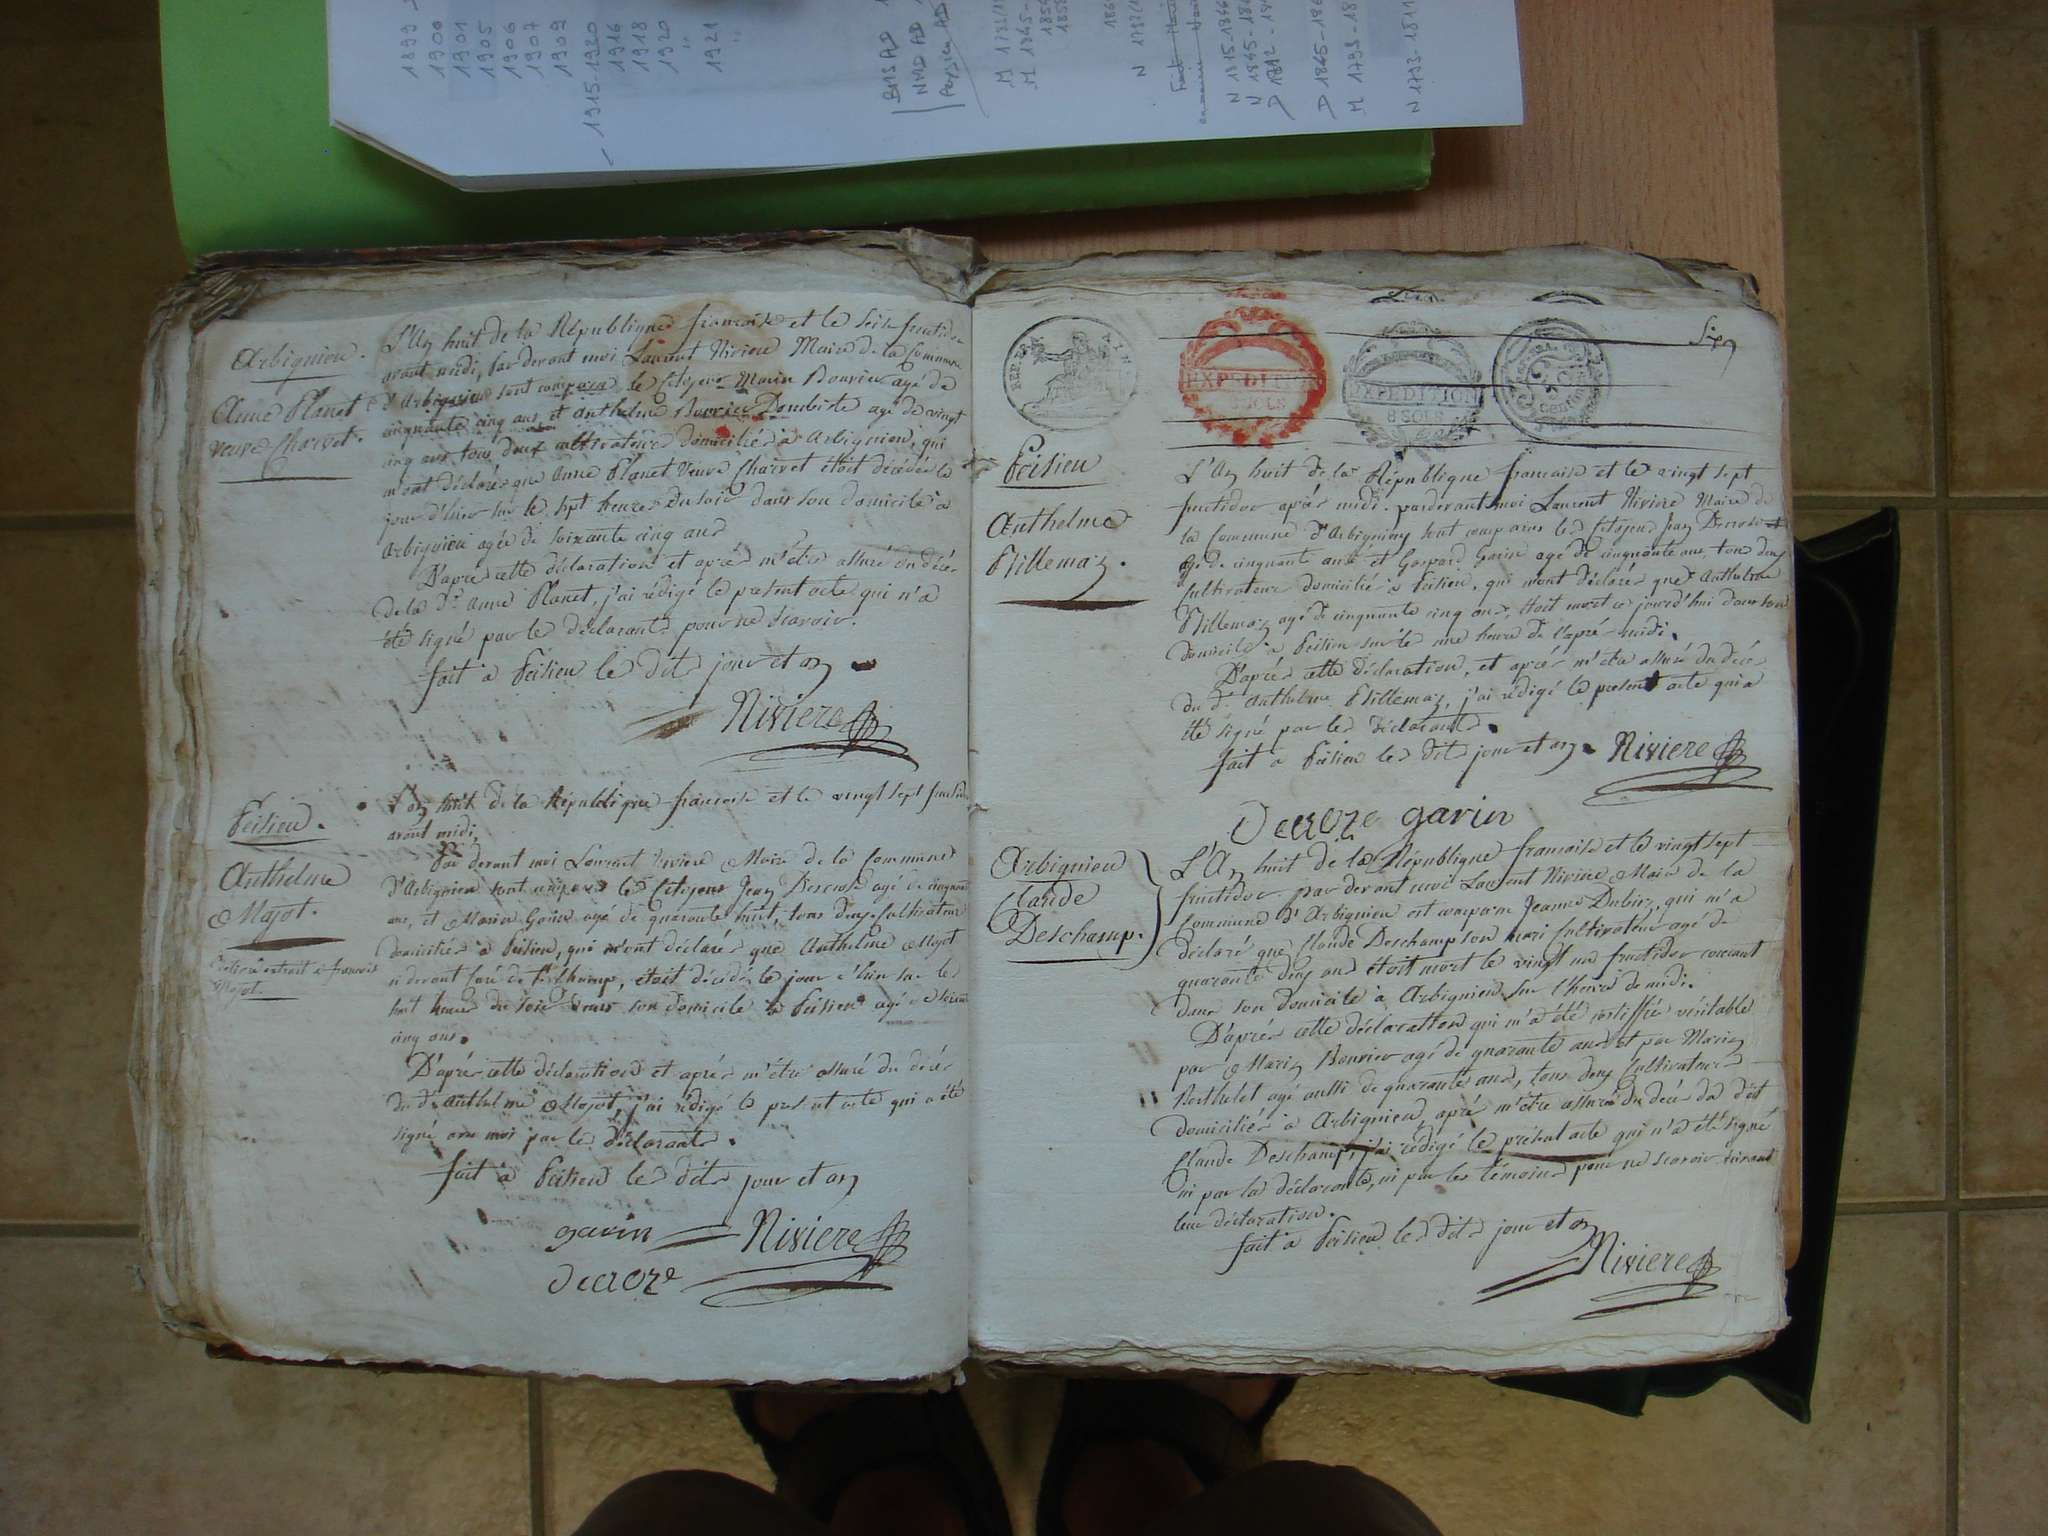 1899
1900
1901
1905
1906
1907
1909
1915-1920
1916
1918
1920
1921
BMS AD
NMD AD
N 1793-1811
Arbignieu.
Anne Planet
veuve Charvet.
L'An huit de la République française et le seize fructidor
avant midi, par devant moi Laurent Riviere Maire de la Commune
d'Arbignieu sont comparu le Citoyens Marin Bouvier agé de
cinquante cinq ans et anthelme Bouvier Dombiste agé de vingt
cinq ans tous deux cultivateurs domiciliés à Arbignieu, qui
m'ont déclarés que Anne Planet Veuve Charvet étoit décédée le
jour d'hier sur le sept heures du soir dans son domicile à
Arbignieu agée de soixante cinq ans
D'après cette déclaration et après m'être assuré du décès
de la de. Anne Planet, j'ai rédigé le present acte qui n'a
été signé par les déclarants pour ne scavoir.
fait à Peisieu le dits jour et an
Riviere
Peisieu.
Anthelme
Mojot.
L'an huit de la République française et le vingt sept fructidor
avant midi,
Par devant moi Laurent Riviere Maire de la Commune
d'Arbignieu sont comparus les Citoyens Jean Decrose agé de cinquante
ans, et Marin Gavin agé de quarante huit, tous deux cultivateurs
domiciliés à Peisieu, qui m'ont déclarés que Anthelme Mojot
ci devant curé de étoit décédé le jour d'hier sur les
huit heures du soir dans son domicile à Peisieu agé de soixante
cinq ans.
D'après cette déclaration et après m'être assuré du décès
du d. Anthelme Mojot, j'ai rédigé le present acte qui a été
signé avec moi par les déclarants.
fait à Peisieu les dits jour et an
gavin Riviere
decroze
Six
EXPEDITION
8 SOLS
EXPEDITION
8 SOLS
Peisieu
Anthelme
Villemaz.
L'An huit de la République française et le vingt sept
fructidor après midi. pardevant moi Laurent Riviere Maire de
la Commune d'Arbignieu sont comparus les Citoyens Jean Decrose
agé de cinquante ans et Gaspard Gavin agé de cinquante ans, tous deux
Cultivateurs domiciliés à Peisieu, qui mont déclarés que Anthelme
Villemaz agé de cinquante cinq ans, étoit mort ce jourd'hui dans son
domicile à Peisieu sur le une heure de l'après midi.
D'après cette déclaration, et après m'être assuré du décès
du d. Anthelme Villemaz, j'ai rédigé le present acte qui a
été signé par les déclarants.
fait à Peisieu les dits jour et an. Riviere
Decroze gavin
Arbignieu
Claude
Deschamp.
L'An huit de la République française et le vingt sept
fructidor par devant moi Laurent Riviere Maire de la
Commune d'Arbignieu est comparue Jeanne Dubier, qui m'a
déclaré que Claude Deschamp son mari Cultivateur agé de
quarante deux ans étoit mort le vingt un fructidor courant
dans son domicile à Arbignieu sur l'heure de midi.
D'après cette déclaration qui m'a été certiffiée véritable
par Marin Bouvier agé de quarante ans et par Marin
Berthelet agé aussi de quarante ans, tous deux Cultivateurs
domiciliés à Arbignieu, après m'être assuré du décès du dit
Claude Deschamp, j'ai rédigé le présent acte qui n'a été signé
ni par la déclarante, ni par les témoins pour ne scavoir suivant
leur déclaration.
fait à Peisieu les dits jour et an
Riviere